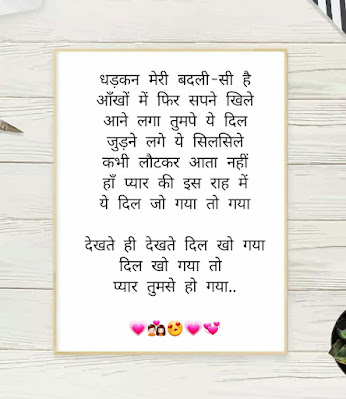 धड़कन मेरी बदली-सी है
आँखों में फिर सपने खिले
आने लगा तुमपे ये दिल
जुड़ने लगे ये सिलसिले
कभी लौटकर आता नहीं
हाँ प्यार की इस राह में
ये दिल जो गया तो गया

देखते ही देखते दिल खो गया
दिल खो गया तो
प्यार तुमसे हो गया..
💗💑😍💗💕